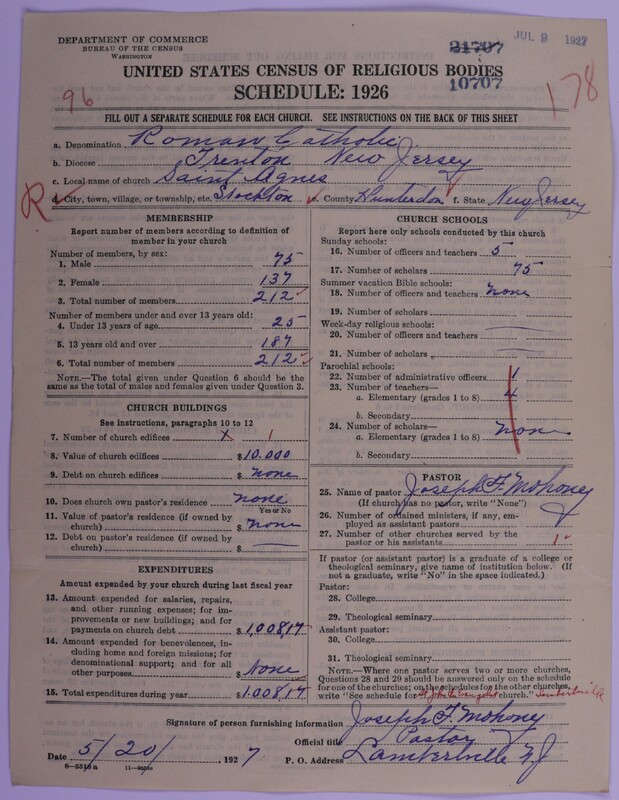 DEPARTMENT OF COMMERCE
BUREAU OF THE CENSUS
WASHINGTON
21707
10707
JUL 9 1927
UNITED STATES CENSUS OF RELIGIOUS BODIES
SCHEDULE: 1926
96
178
FILL OUT A SEPARATE SCHEDULE FOR EACH CHURCH. SEE INSTRUCTIONS ON THE BACK OF THIS SHEET
a. Denomination Roman Catholic
b. Diocese Trenton New Jersey
c. Local name of church Saint Agnes
R
d. City, town, village, or township, etc. Stockton e. County Hunterdon f. State New Jersey
MEMBERSHIP
Report number of members according to definition of
member in your church
Number of members, by sex:
1. Male 75
2. Female 137
3. Total number of members 212
Number of members under and over 13 years old:
4. Under 13 years of age 25
5. 13 years old and over 187
6. Total number of members 212
NOTE.—The total given under Question 6 should be the
same as the total of males and females given under Question 3.
CHURCH BUILDINGS
See instructions, paragraphs 10 to 12
7. Number of church edifices X 1
8. Value of church edifices $10.000
9. Debt on church edifices $ none
10. Does church own pastor's residence none
Yes or No
11. Value of pastor's residence (if owned by
church) $ none
12. Debt on pastor's residence (if owned by
church) $
EXPENDITURES
Amount expended by your church during last fiscal year
13. Amount expended for salaries, repairs,
and other running expenses; for im-
provements or new buildings; and for
payments on church debt $ 1,008,17
14. Amount expended for benevolences, in-
cluding home and foreign missions; for
denominational support; and for all
other purposes $ None
15. Total expenditures during year $ 1.008,17
CHURCH SCHOOLS
Report here only schools conducted by this church
Sunday schools:
16. Number of officers and teachers 5
17. Number of scholars 75
Summer vacation Bible schools:
18. Number of officers and teachers none
19. Number of scholars
Week-day religious schools:
20. Number of officers and teachers
21. Number of scholars
Parochial schools:
22. Number of administrative officers 1
23. Number of teachers—
a. Elementary (grades 1 to 8) 4
b. Secondary
24. Number of scholars—
a. Elementary (grades 1 to 8) none
b. Secondary
PASTOR
25. Name of pastor Joseph F. Mohoney
(If church has no pastor, write "None")
26. Number of ordained ministers, if any, em-
ployed as assistant pastors
27. Number of other churches served by the
pastor or his assistants 1
If pastor (or assistant pastor) is a graduate of a college or
theological seminary, give name of institution below. (If
not a graduate, write "No" in the space indicated.)
Pastor:
28. College
29. Theological seminary
Assistant pastor:
30. College
31. Theological seminary
NOTE.—Where one pastor serves two or more churches,
Questions 28 and 29 should be answered only on the schedule
for one of the churches; on the schedules for the other churches,
write "See schedule for church." Lambertville
Signature of person furnishing information Joseph F. Mohoney
Official title Pastor
Date 5/20/, 1927 P. O. Address Lambertville N.J